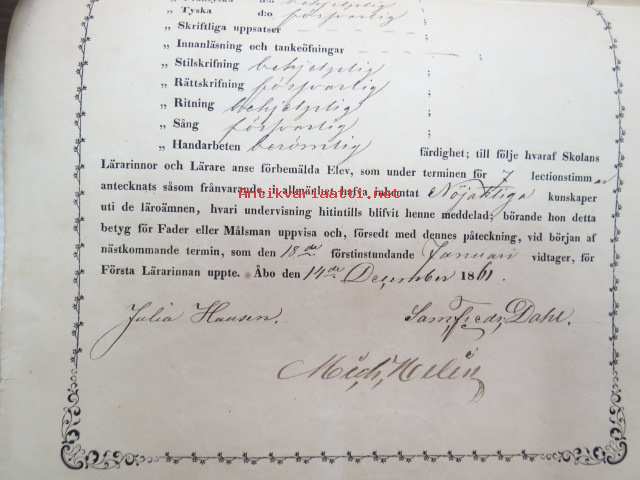 behjelplig
„ Tyska d:o försvarlig ;
„ Skriftliga uppsatser — ;
„ Innanläsning och tankeöfningar — ;
„ Stilskrifning behjelplig ;
„ Rättskrifning försvarlig ;
„ Ritning behjelplig ;
„ Sång försvarlig ;
„ Handarbeten berömlig färdighet; till följe hvaraf Skolans
Lärarinnor och Lärare anse förbemälda Elev, som under terminen för 7 lectionstimmar
antecknats såsom frånvarande, i allmänhet hafva inhemtat Nöjaktiga kunskaper
uti de läroämnen, hvari undervisning hitintills blifvit henne meddelad; börande hon detta
betyg för Fader eller Målsman uppvisa och, försedt med dennes påteckning, vid början af
nästkommande termin, som den 18de förstinstundande Januari vidtager, för
Första Lärarinnan uppte. Åbo den 14de December 1861.
Julia Hausen. Sam. Fredr. Dahl.